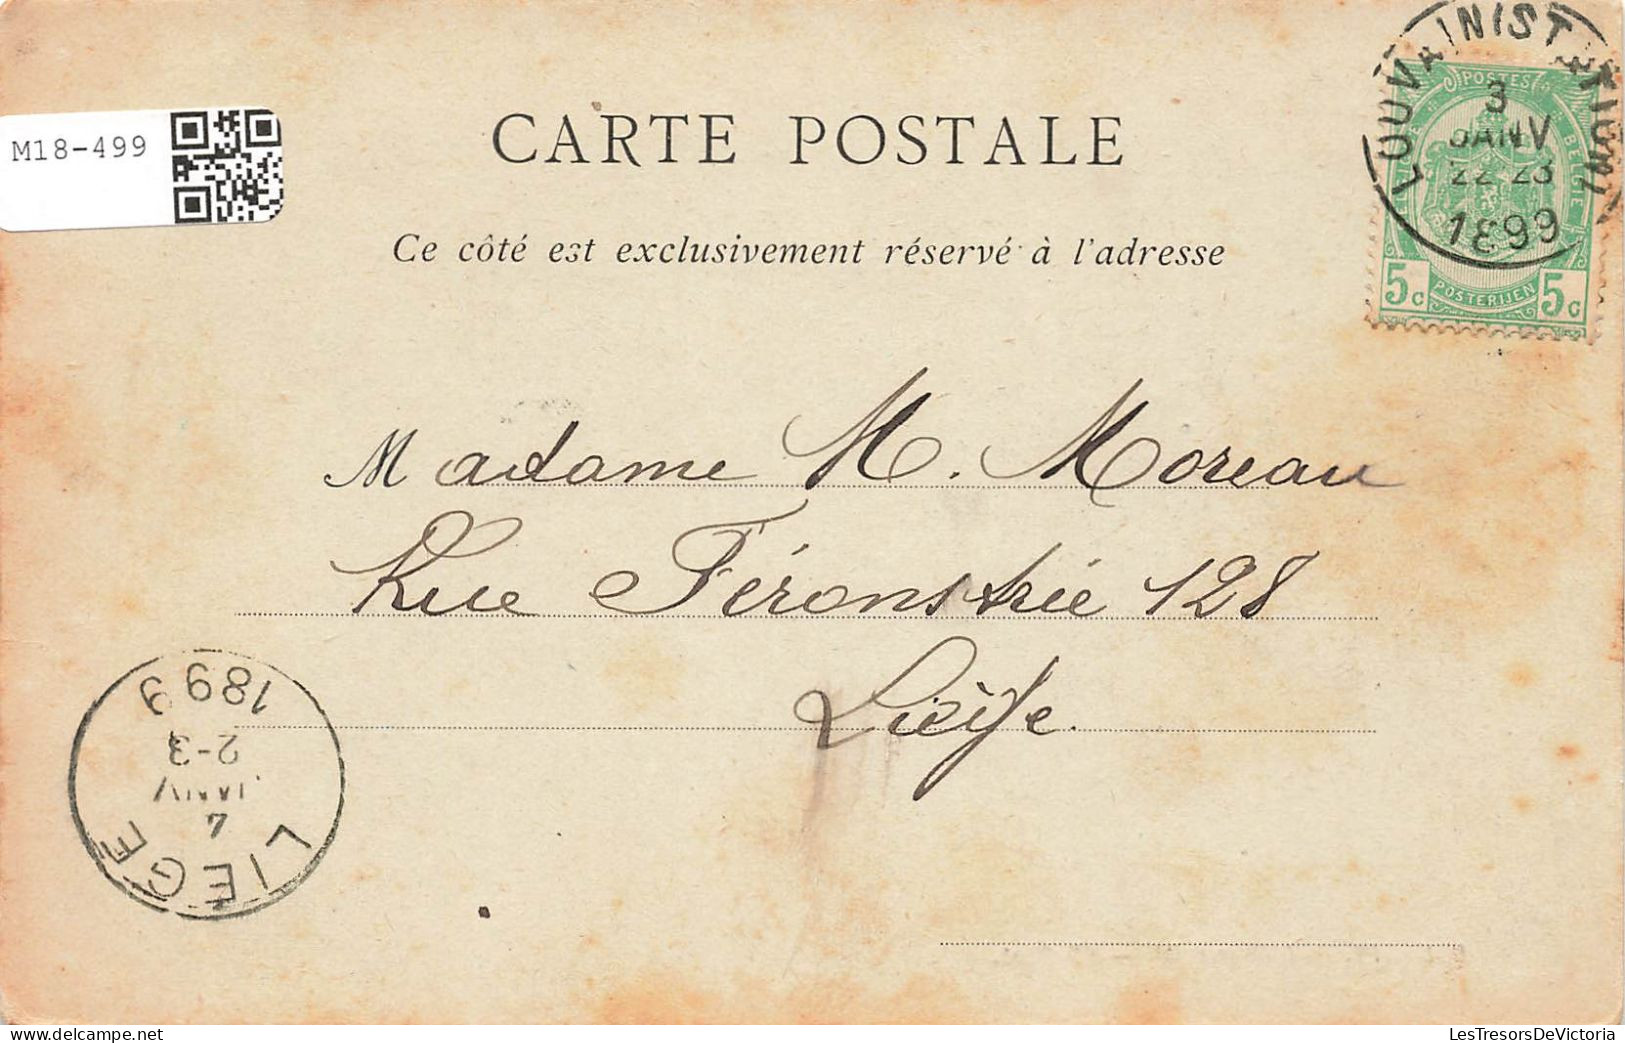 M18-499
CARTE POSTALE
Ce côté est exclusivement réservé à l'adresse
LOUVAIN (STATION)
3
JANV
22-23
1899
POSTES
BELGIQUE BELGIË
5c POSTERIJEN 5c
Madame M. Moreau
Rue Féronstrée 128
Liège.
LIEGE
4
JANV
2-3
1899
LesTresorsDeVictoria